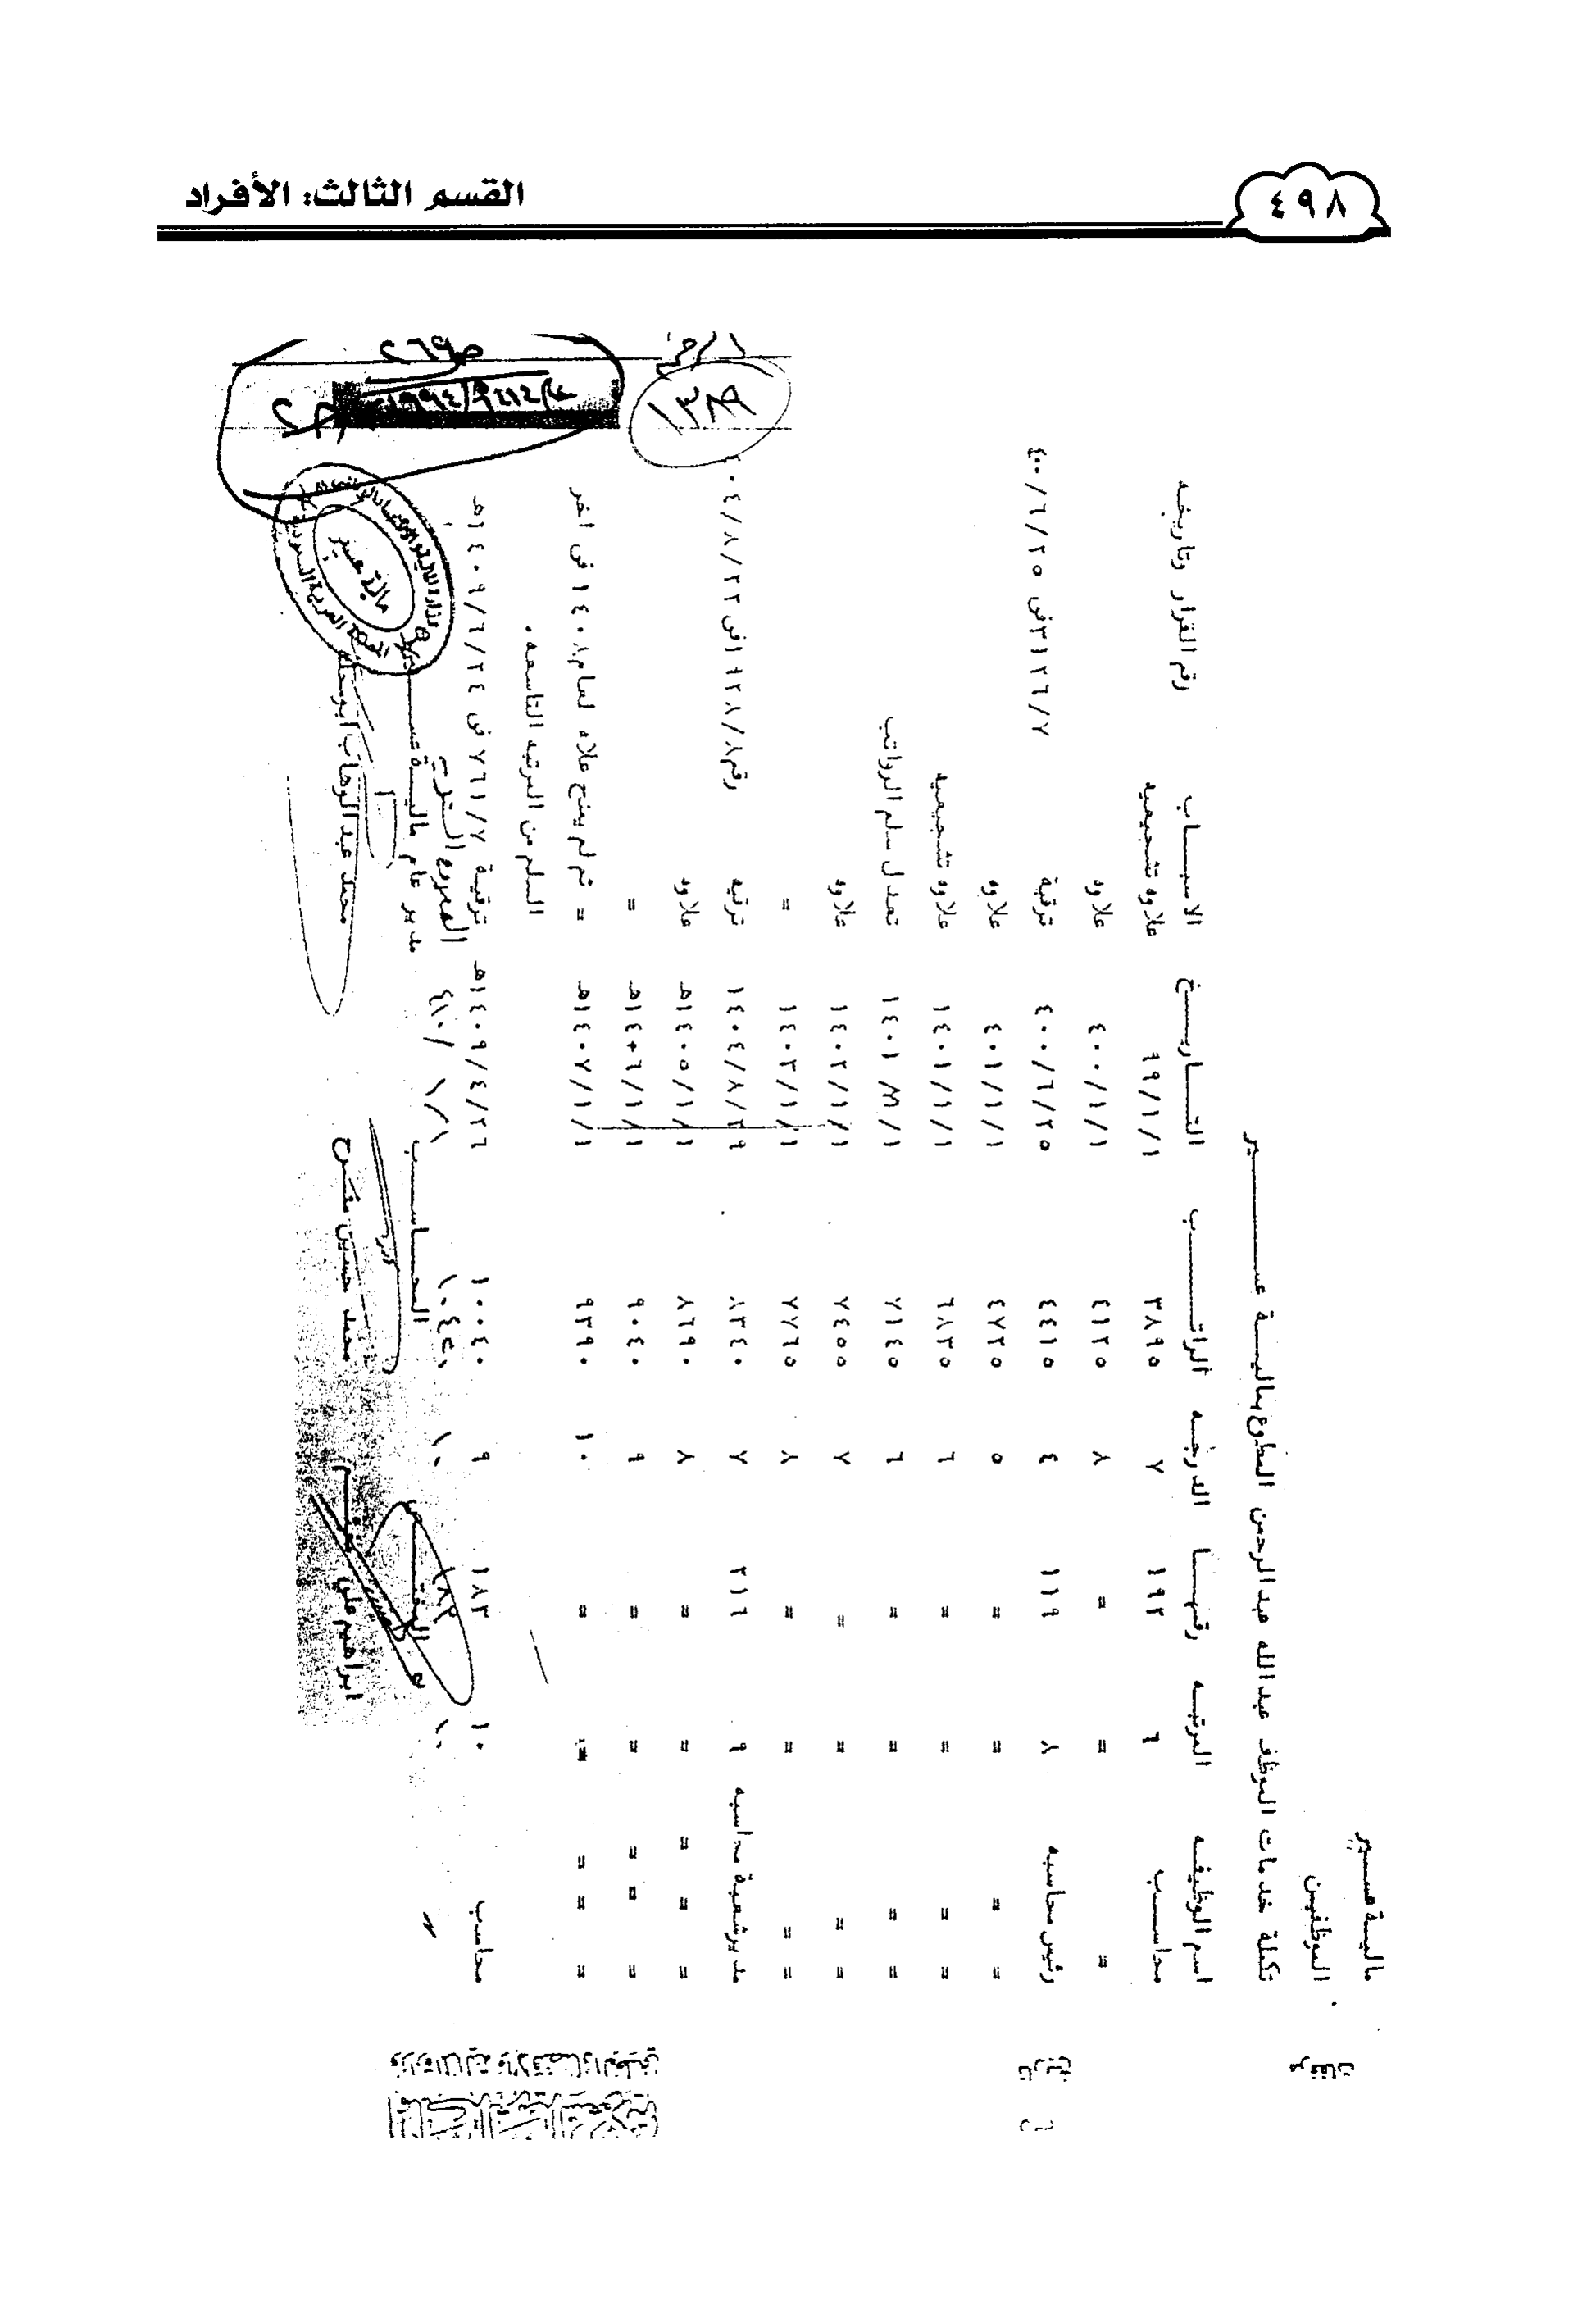 القسم الثالث: الأفراد
٤٩٨
المملكة العربية السعودية
وزارة المالية والاقتصاد الوطني
مالية عسير
الموظفين
تكملة خدمات الموظف عبدالله عبدالرحمن المطوع بمالية عسير
اسم الوظيفه المرتبه رقمها الدرجه الراتب التاريخ الاسباب رقم القرار وتاريخه
محاسب ٦ ١٩٢ ٧ ٣٨٩٥ ٩٩/١/١ علاوه تشجيعيه
= = = ٨ ٤١٢٥ ٤٠٠/١/١ علاوه
رئيس محاسبه ٨ ١١٩ ٤ ٤٤١٥ ٤٠٠/٦/٢٥ ترقية ٣١٢٦/٧ في ٤٠٠/٦/٢٥
= = = = ٥ ٤٧٢٥ ٤٠١/١/١ علاوه
= = = = ٦ ٦٨٣٥ ١٤٠١/١/١ علاوه تشجيعيه
= = = = ٦ ٧١٤٥ ١٤٠١ تعدل سلم الرواتب
= = = = ٧ ٧٤٥٥ ١٤٠٢/١/١ علاوه
= = = = ٨ ٧٧٦٥ ١٤٠٣/١/١ =
مدير شعبة محاسبه ٩ ٢١٦ ٧ ٨٣٤٠ ١٤٠٤/٨/٢٩ ترقيه رقم ١٩٢٨/٨ في ٤٠٤/٨/٢٢
= = = = = ٨ ٨٦٩٠ ١٤٠٥/١/١هـ علاوه
= = = = = ٩ ٩٠٤٠ ١٤٠٦/١/١هـ =
= = = = = ١٠ ٩٣٩٠ ١٤٠٧/١/١هـ = ثم لم يمنح علاه لعام ١٤٠٨ في اخر
السلم من المرتبه التاسعه .
محاسب ١٠ ١٨٣ ٩ ١٠٠٤٠ ١٤٠٩/٤/٢٦هـ ترقية ٧٦١/٧ في ١٤٠٩/٦/٢٤هـ
〃 ١٠ ١٨٣ ١٠ ١٠٤٤٠ ٤١٠/١/١
المحاسب مدير عام مالية عسير
ابراهيم علي محمد حسين مفرح محمد عبدالوهاب ابوملحه
مالية عسير
١٣٨٩